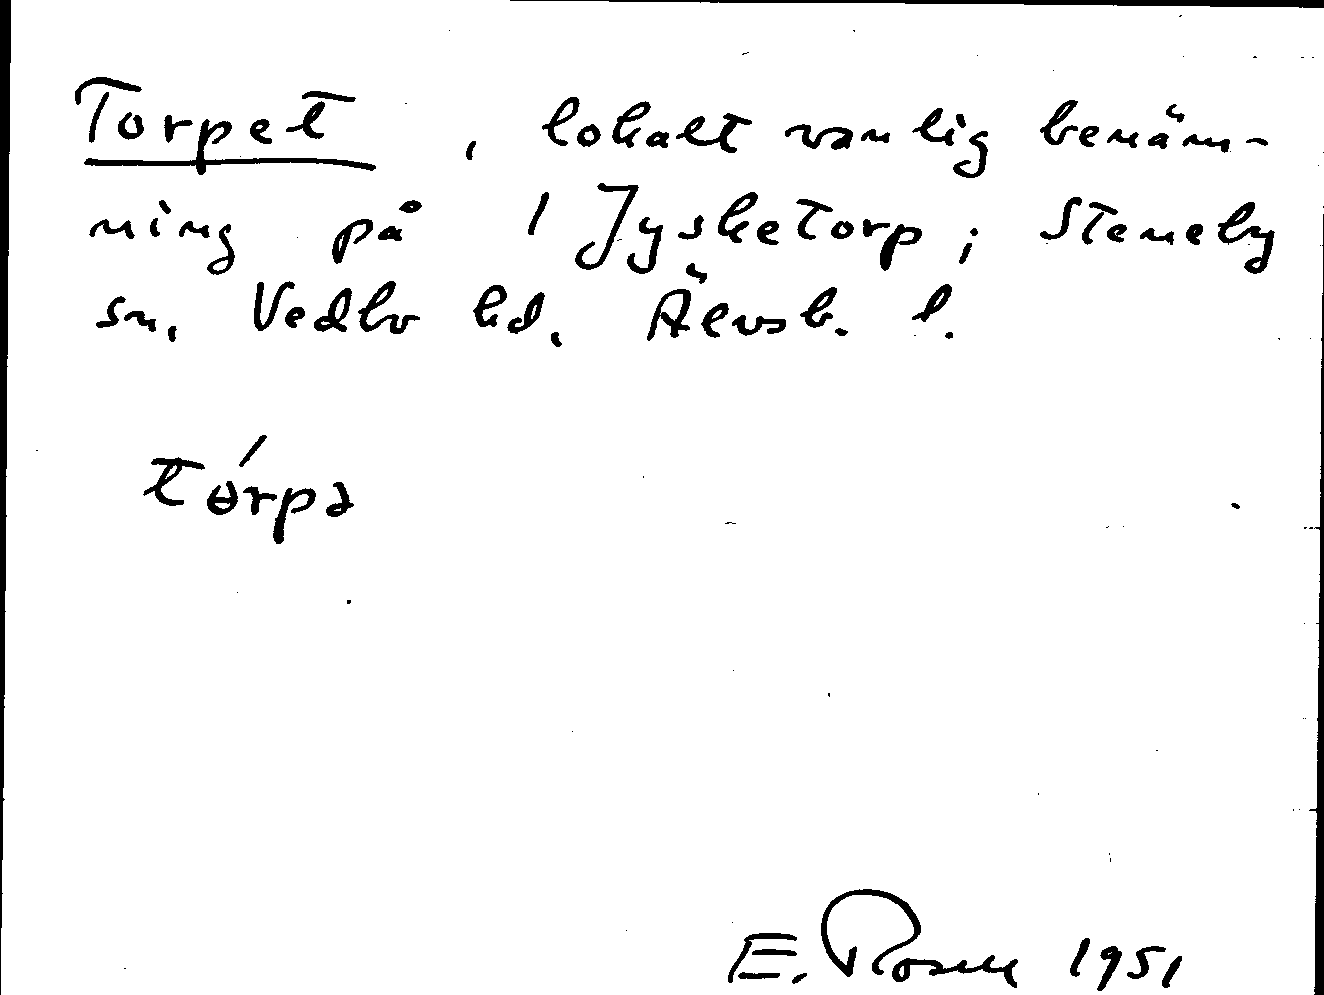 Torpet, lokalt vanlig benäm-
ning på 1 Jysketorp i Steneby
sn, Vedbo hd. Älvsb. l.
tɵ́rpə
E. Rosell 1951